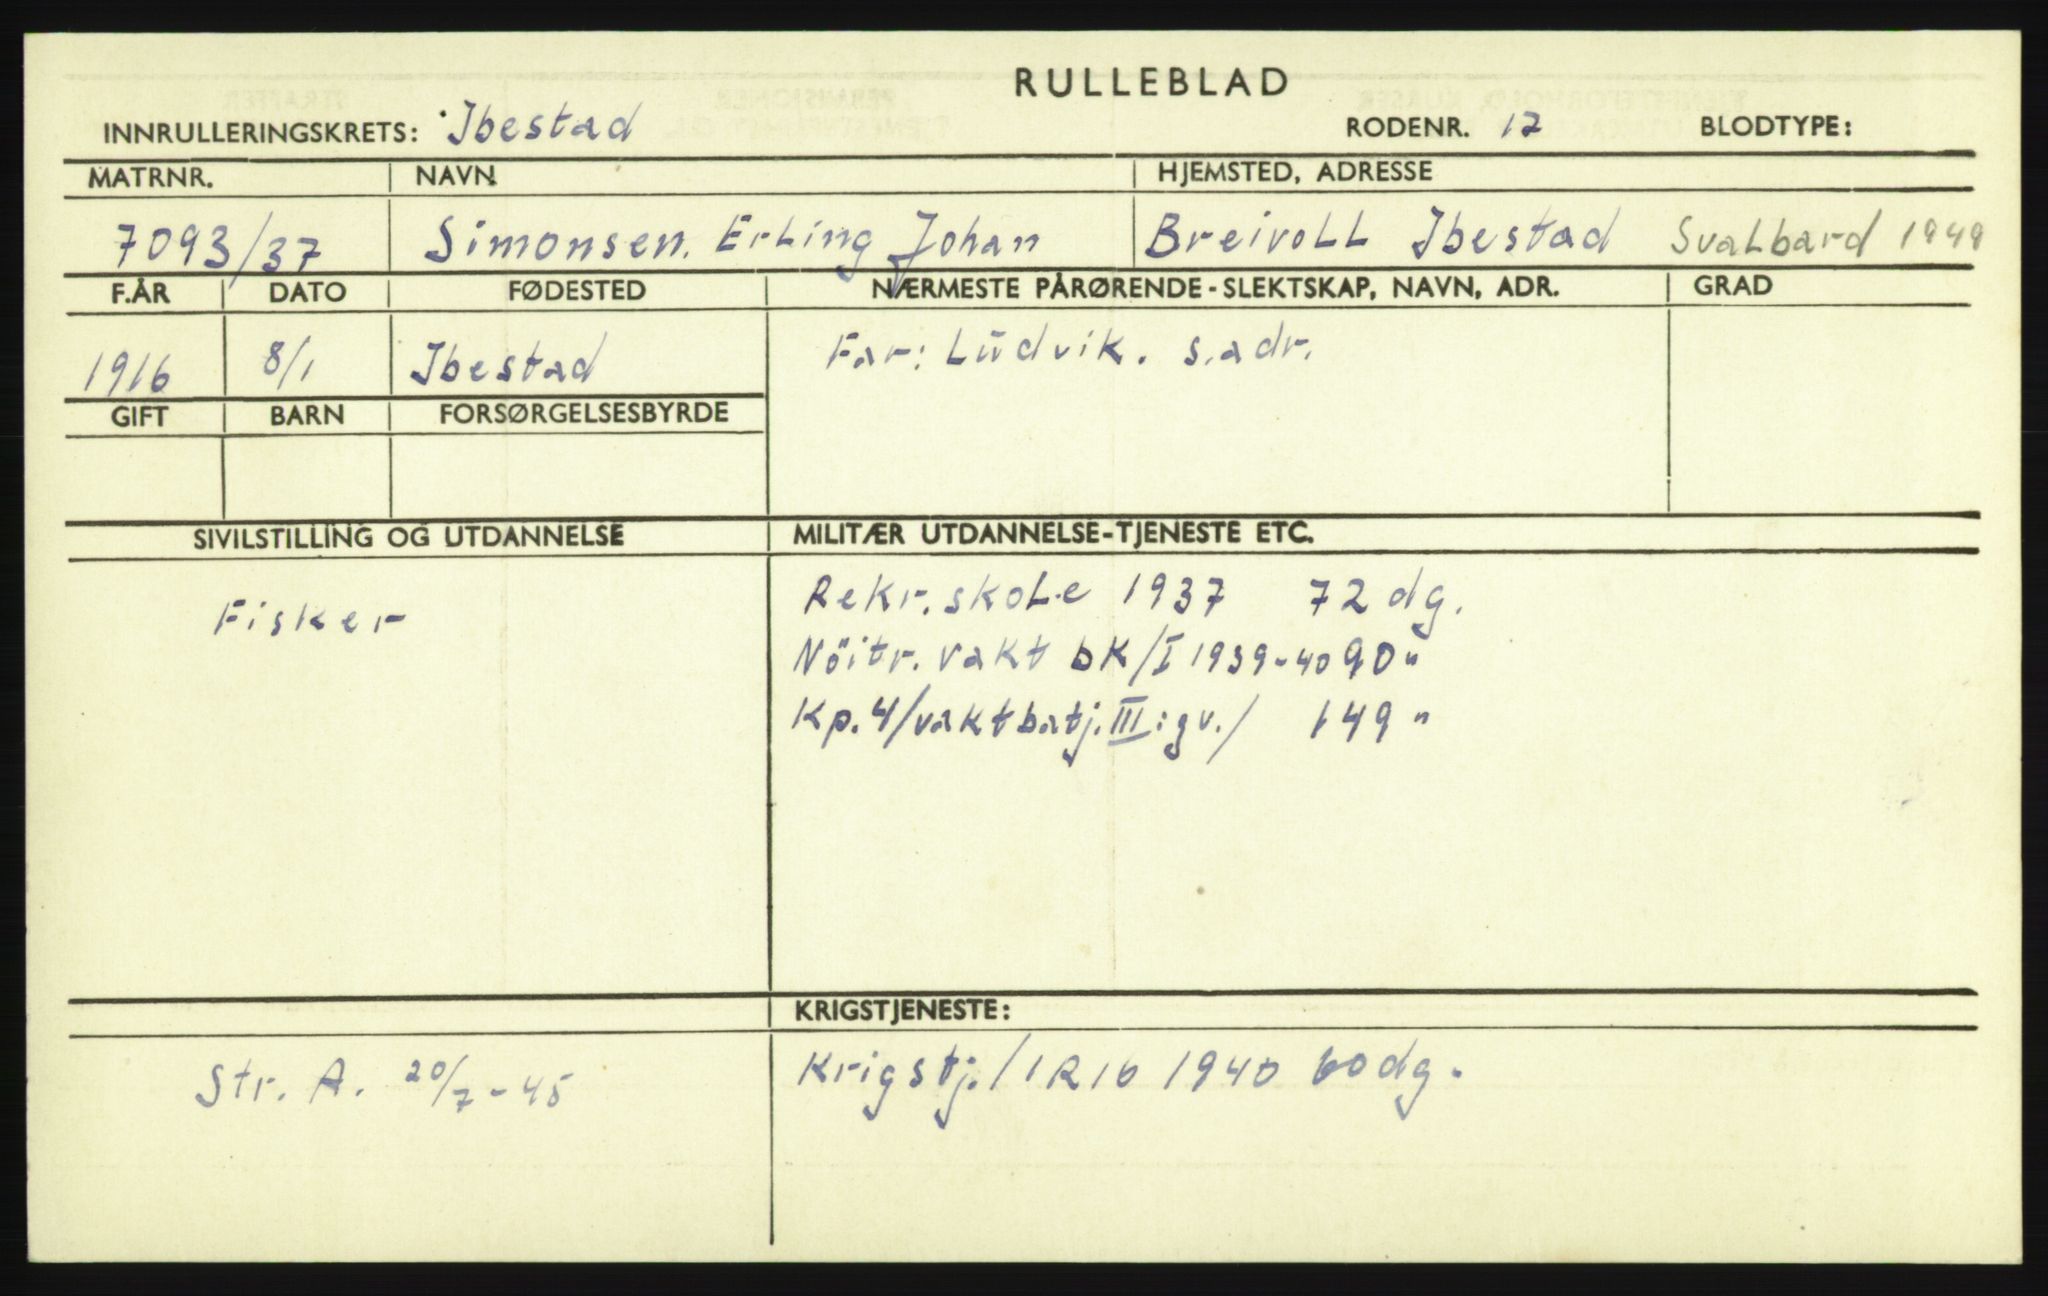 RULLEBLAD
INNRULLERINGSKRETS: Ibestad RODENR. 17 BLODTYPE:
MATRNR. NAVN HJEMSTED, ADRESSE
7093/37 Simonsen. Erling Johan Breivoll Ibestad Svalbard 1949
F.ÅR DATO FØDESTED NÆRMESTE PÅRØRENDE - SLEKTSKAP, NAVN, ADR. GRAD
1916 8/1 Ibestad Far: Ludvik. s.adr.
GIFT BARN FORSØRGELSESBYRDE
SIVILSTILLING OG UTDANNELSE MILITÆR UTDANNELSE-TJENESTE ETC.
Fisker Rekr.skole 1937 72 dg.
Nöitr. vakt bk/I 1939-40 90 "
Kp.4/vaktbatj.III:gv./ 149 "
KRIGSTJENESTE:
Str. A. 20/7-45 Krigstj./IR16 1940 60 dg.